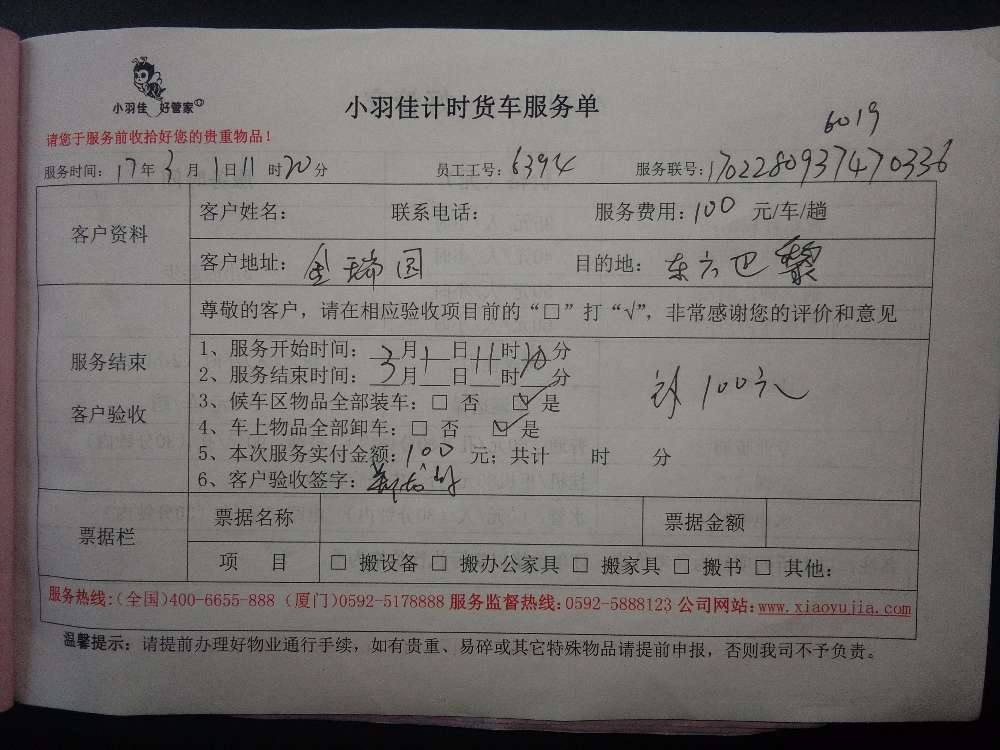 小羽佳 好管家
小羽佳计时货车服务单
6019
请您于服务前收拾好您的贵重物品！
服务时间：17年3月1日11时20分 员工工号：6394 服务联号：1702280937470336
客户资料
客户姓名： 联系电话： 服务费用：100 元/车/趟
客户地址：金瑞园 目的地：东方巴黎
尊敬的客户，请在相应验收项目前的“□”打“√”，非常感谢您的评价和意见
服务结束
客户验收
1、服务开始时间：3月1日11时20分
2、服务结束时间：3月__日__时__分
3、候车区物品全部装车：□ 否 ☑ 是
4、车上物品全部卸车：□ 否 ☑ 是
5、本次服务实付金额：100 元；共计 时 分
6、客户验收签字：
100元
票据栏
票据名称 票据金额
项 目 □ 搬设备 □ 搬办公家具 □ 搬家具 □ 搬书 □ 其他：
服务热线：(全国)400-6655-888 (厦门)0592-5178888 服务监督热线：0592-5888123 公司网站：www.xiaoyujia.com
温馨提示：请提前办理好物业通行手续，如有贵重、易碎或其它特殊物品请提前申报，否则我司不予负责。